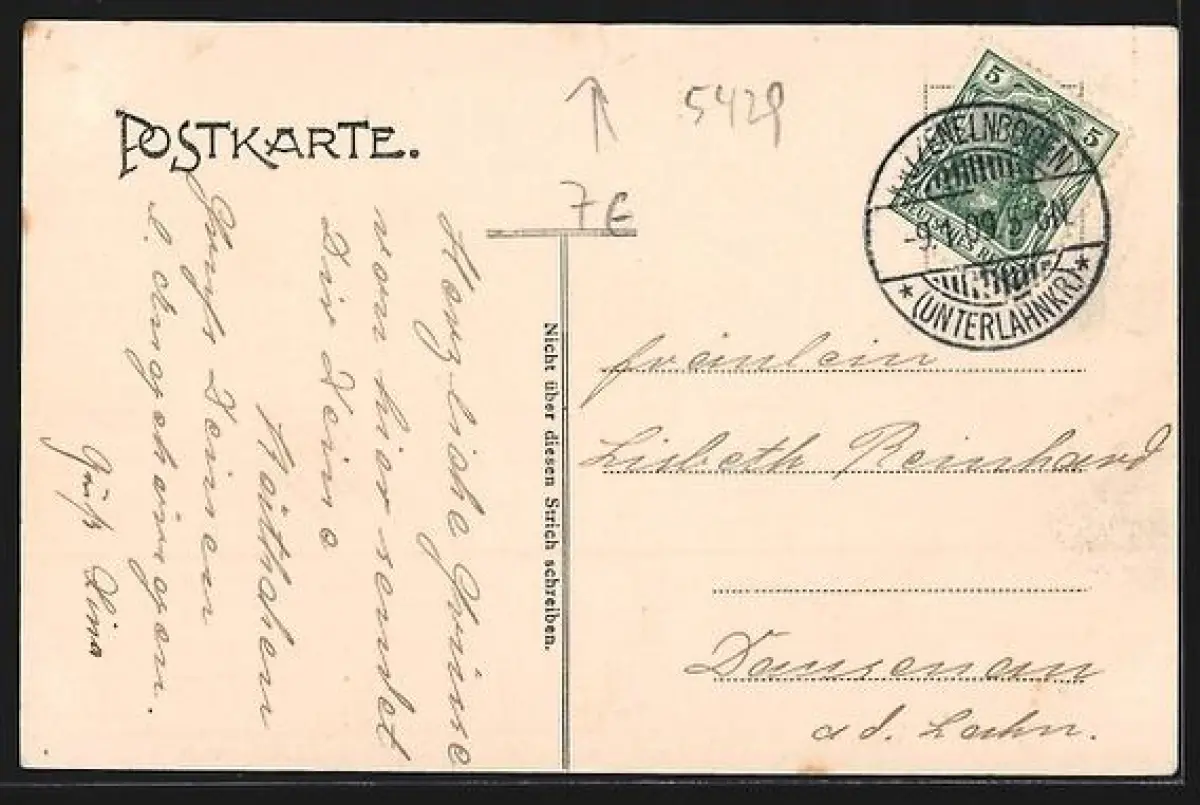 POSTKARTE.
5429
7 €
5 5
DEUTSCHES REICH
KATZENELNBOGEN
-9. 09 5-6N.
*(UNTERLAHNKR.)*
Nicht über diesen Strich schreiben.
Fräulein
Lisbeth Reinhard
Dausenau
a d. Lahn.
Herzliche Grüße
von hier sendet
Dir Deine
Käthchen
Gruß Deinen
l. Angehörigen.
Gruß Lina